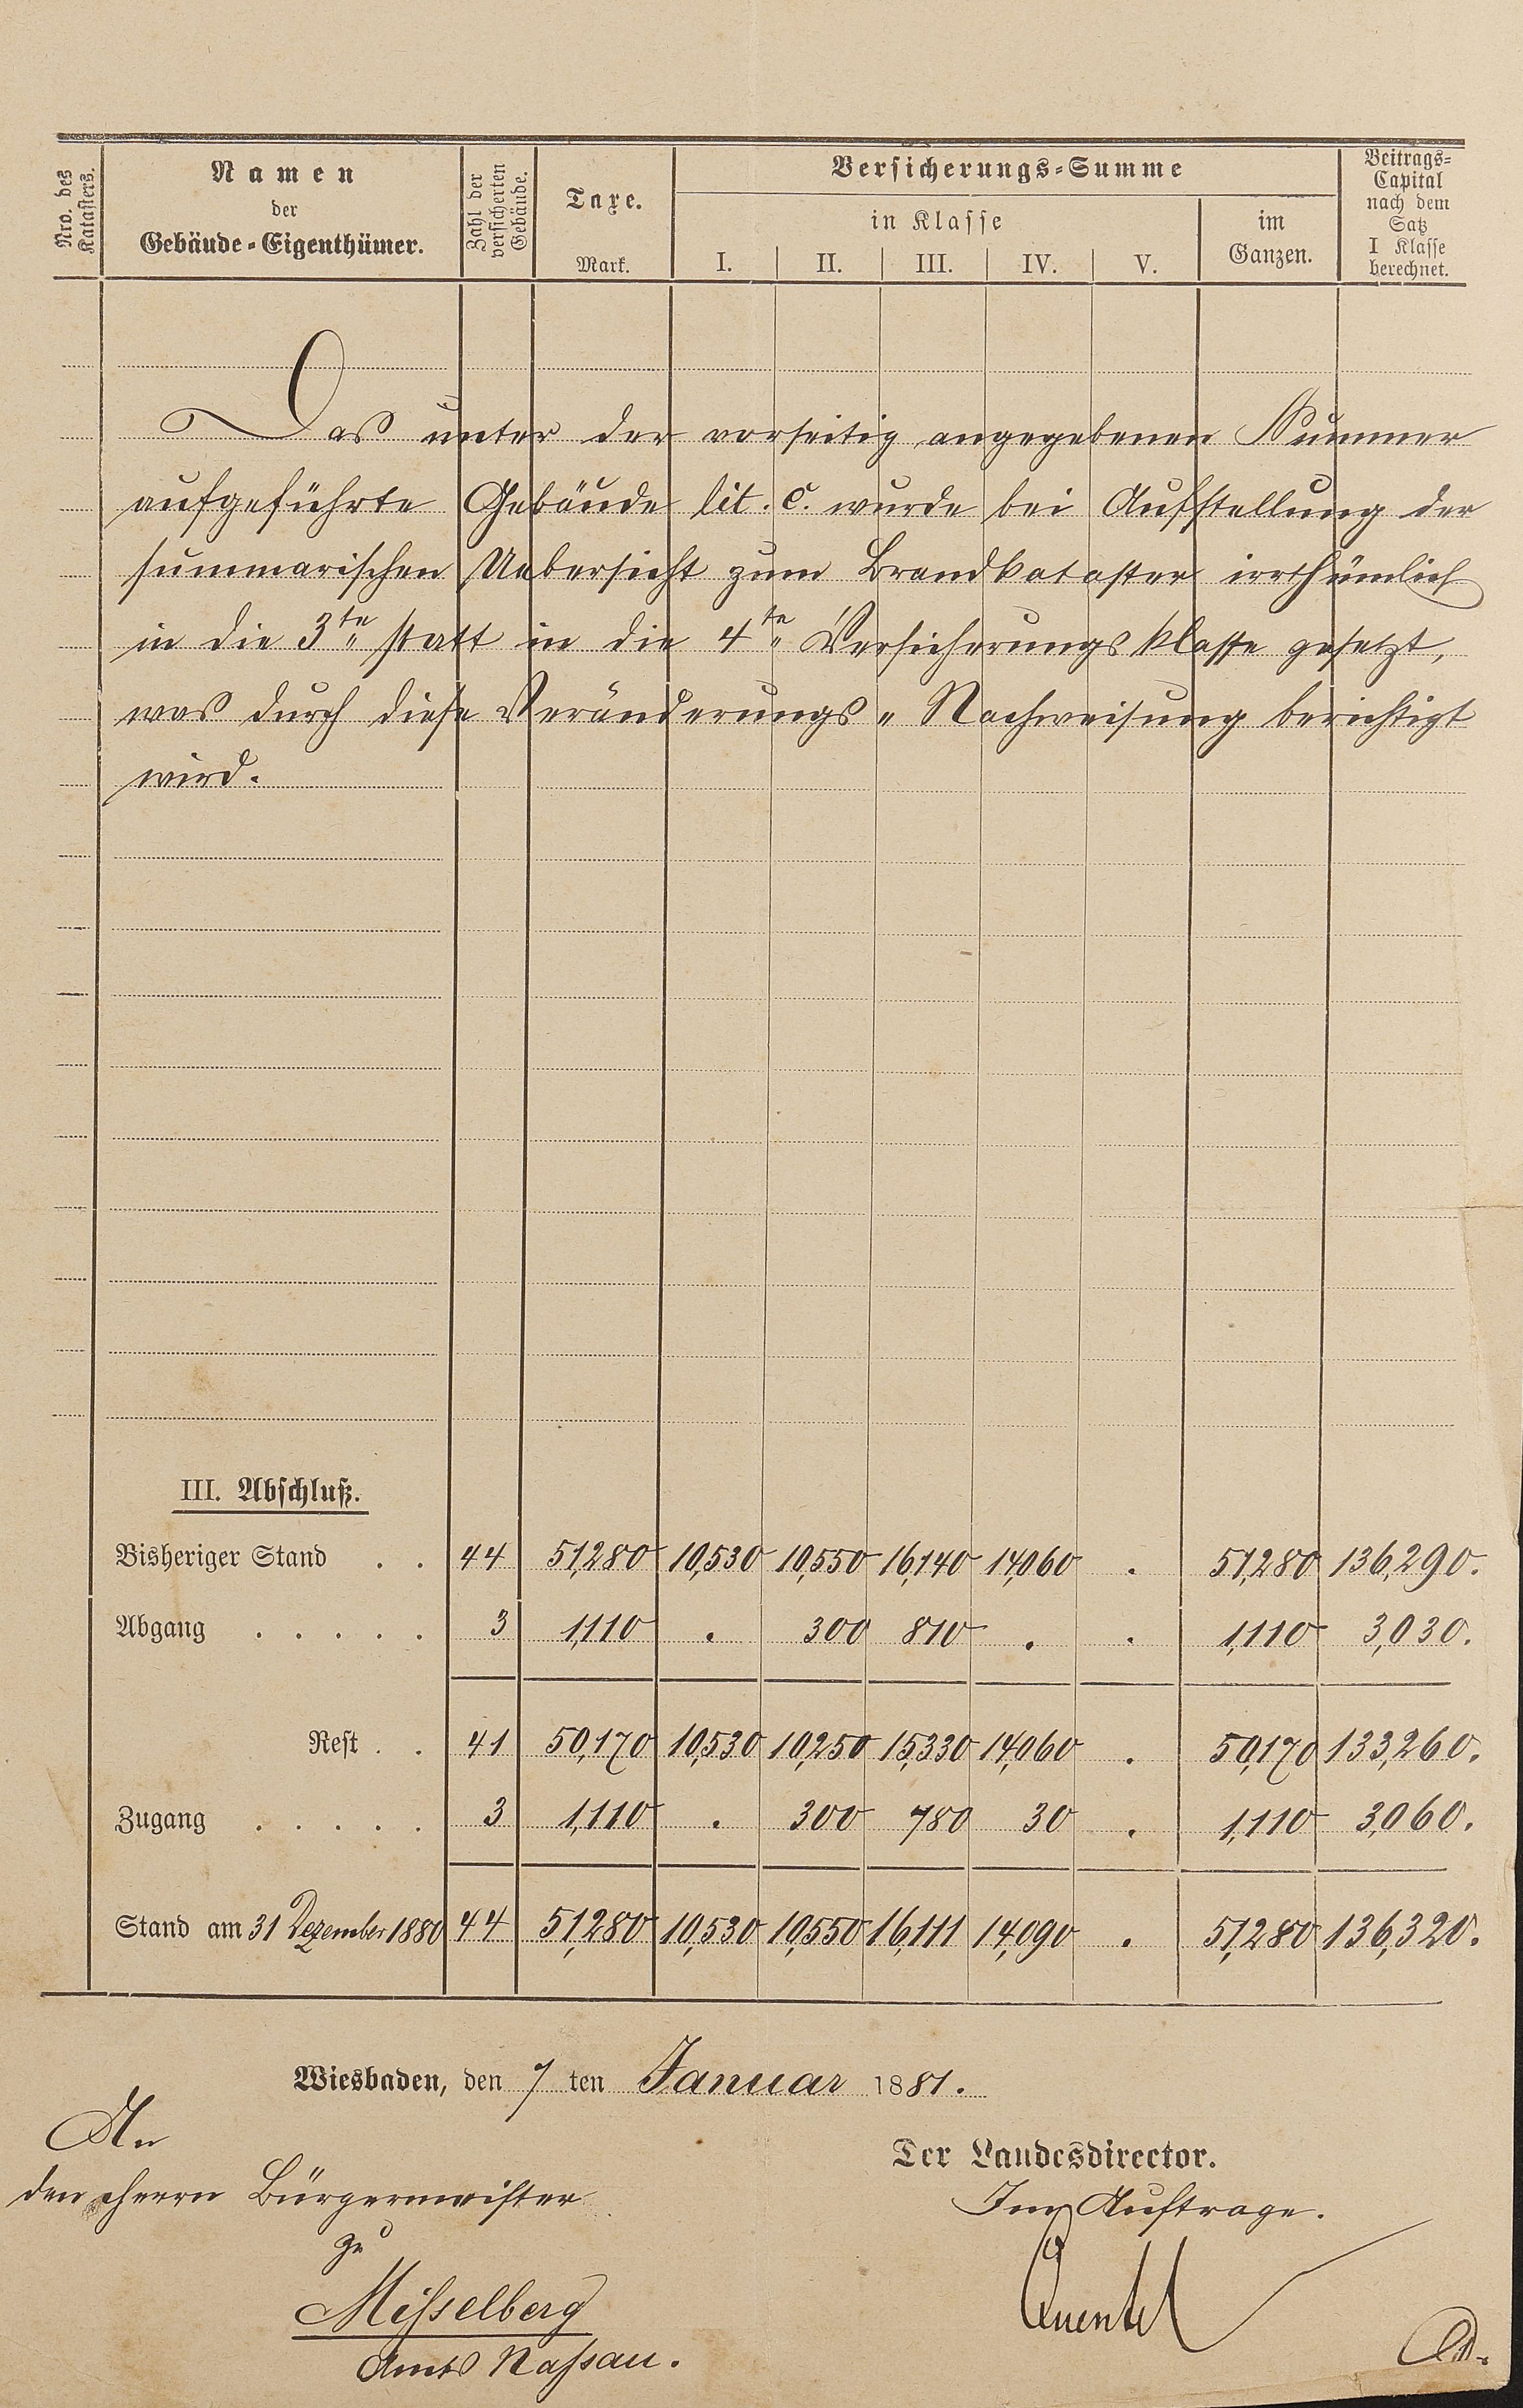 Nro. des Katasters.
Namen
der
Gebäude-Eigenthümer.
Zahl der versicherten Gebäude.
Taxe.
Mark.
Versicherungs-Summe
in Klasse
I. II. III. IV. V.
im
Ganzen.
Beitrags-
Capital
nach dem
Satz
I Klasse
berechnet.
Das unter der vorseitig angegebenen Nummer
aufgeführte Gebäude lit. c. wurde bei Aufstellung der
summarischen Uebersicht zum Brandkataster irrthümlich
in die 3te statt in die 4te Versicherungsklasse gesetzt,
was durch diese Veränderungs-Nachweisung berichtigt
wird.
III. Abschluß.
Bisheriger Stand . . 44 51,280 10,530 10,550 16,140 14,060 . 51,280 136,290.
Abgang . . . . . 3 1,110 . 300 810 . . 1,110 3,030.
Rest . . 41 50,170 10,530 10,250 15,330 14,060 . 50,170 133,260.
Zugang . . . . . 3 1,110 . 300 780 30 . 1,110 3,060.
Stand am 31 Dezember 1880 44 51,280 10,530 10,550 16,111 14,090 . 51,280 136,320.
Wiesbaden, den 7 ten Januar 1881.
An
den Herrn Bürgermeister
zu
Misselberg
Amts Nassau.
Der Landesdirector.
Im Auftrage.
Quentel